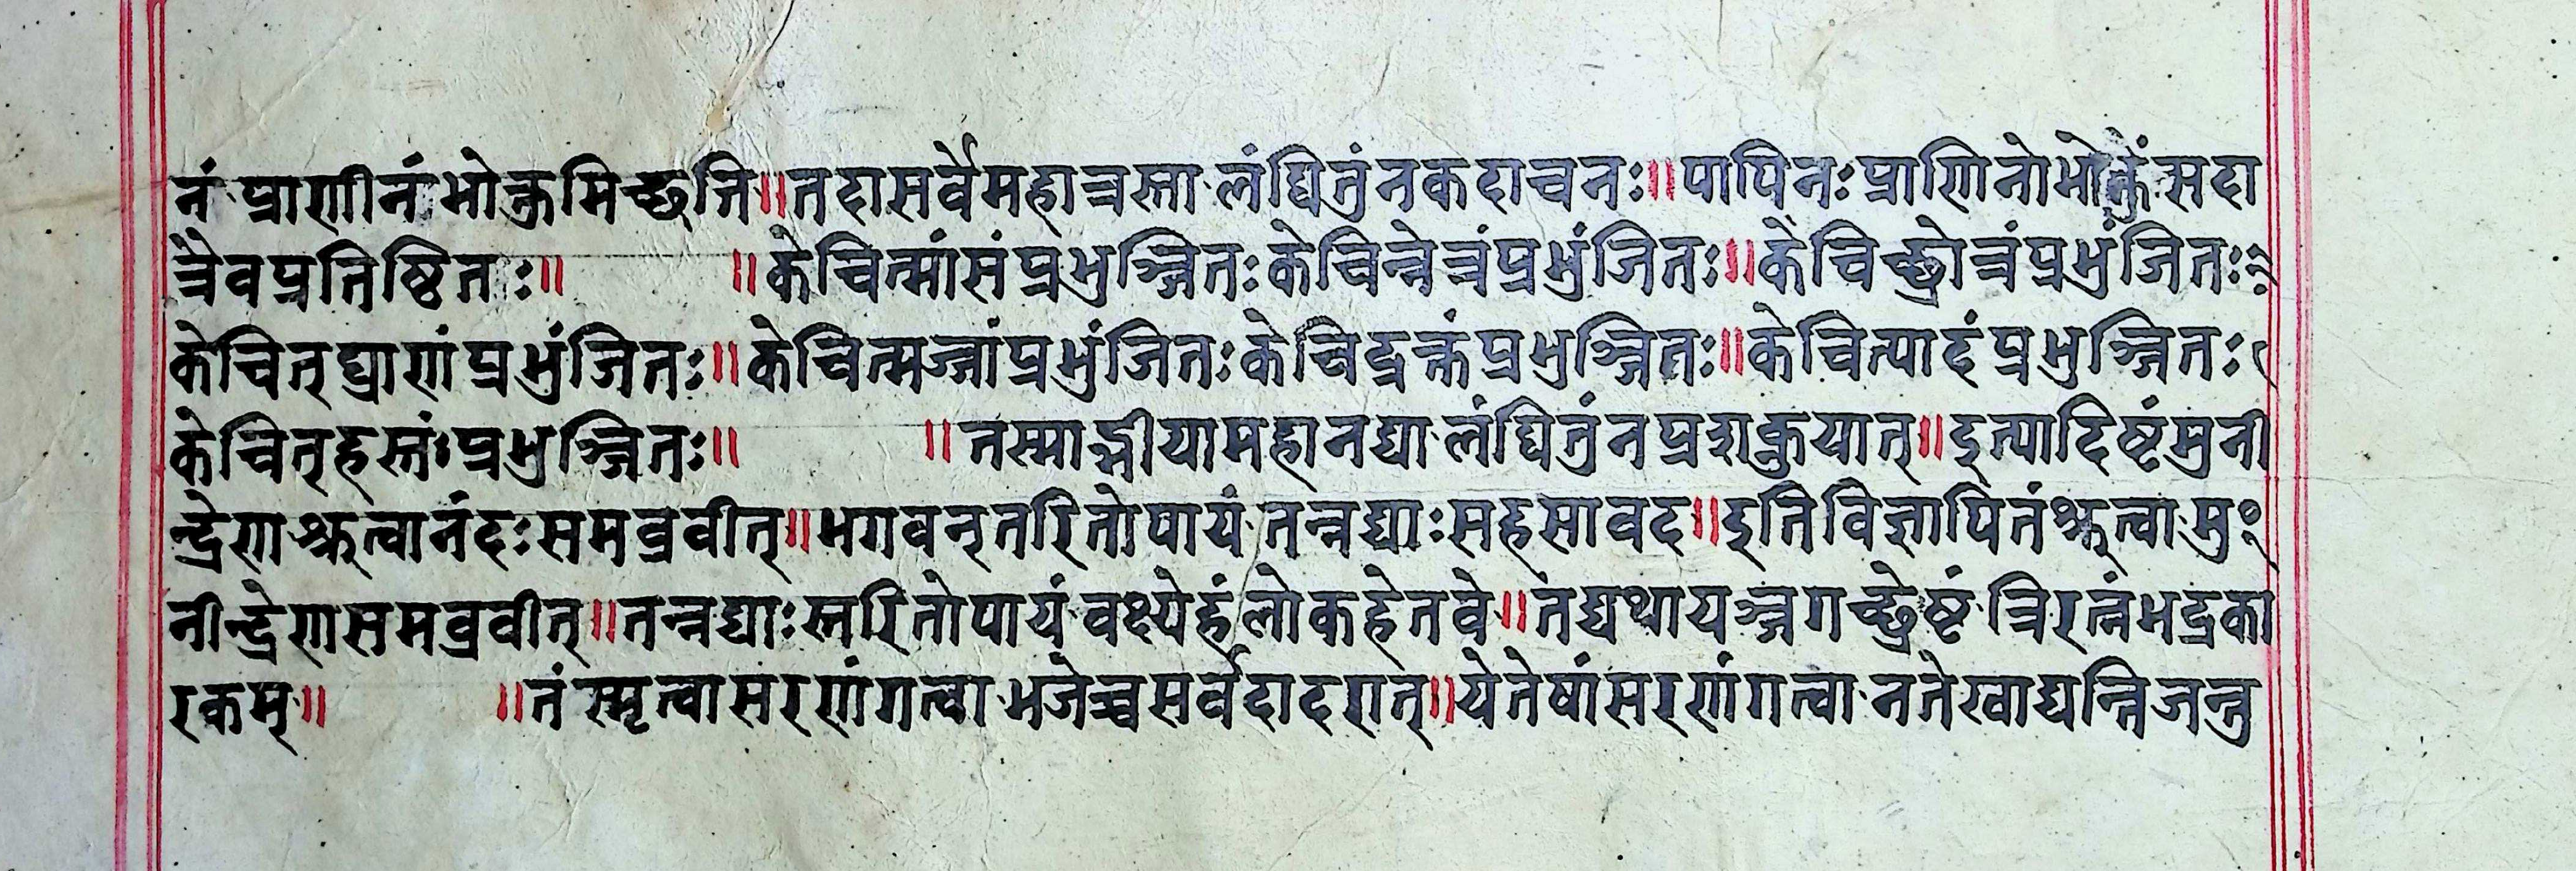 नं प्राणीनं भोक्तुमिच्छति॥तदासर्वेमहात्रस्ता लंघितुंनकदाचनः॥पापिनःप्राणिनोभोक्तुंसदा
त्रैवप्रतिष्ठितः॥ ॥केचित्मांसंप्रभुञ्जितःकेचिन्नेत्रंप्रभुंजितः॥केचिच्छ्रोत्रंप्रभुंजितः
केचित्घ्राणंप्रभुंजितः॥केचित्मज्जांप्रभुंजितःकेचिद्रक्तंप्रभुञ्जितः॥केचित्पादंप्रभुञ्जितः
केचित्हस्तंःप्रभुञ्जितः॥ ॥तस्माद्भीयामहानद्या लंघितुंनप्रशकुयात्॥इत्यादिष्टंमुनी
न्द्रेणश्रुत्वानंदःसमब्रवीत्॥भगवन्तरितोपायं तन्नद्याःसहसावद॥इतिविज्ञापितंश्रुत्वामु
नीन्द्रेणसमब्रवीत्॥तन्नद्याःस्तरितोपायं वक्ष्येहंलोकहेतवे॥तद्यथायञ्जगच्छ्रेष्टं त्रिरत्नंभद्रका
रकम्॥ ॥तं स्मृत्वासरणंगत्वा भजेच्चसर्वदादरात्॥येतेषांसरणंगत्वा नतेखाद्यन्निजन्तु